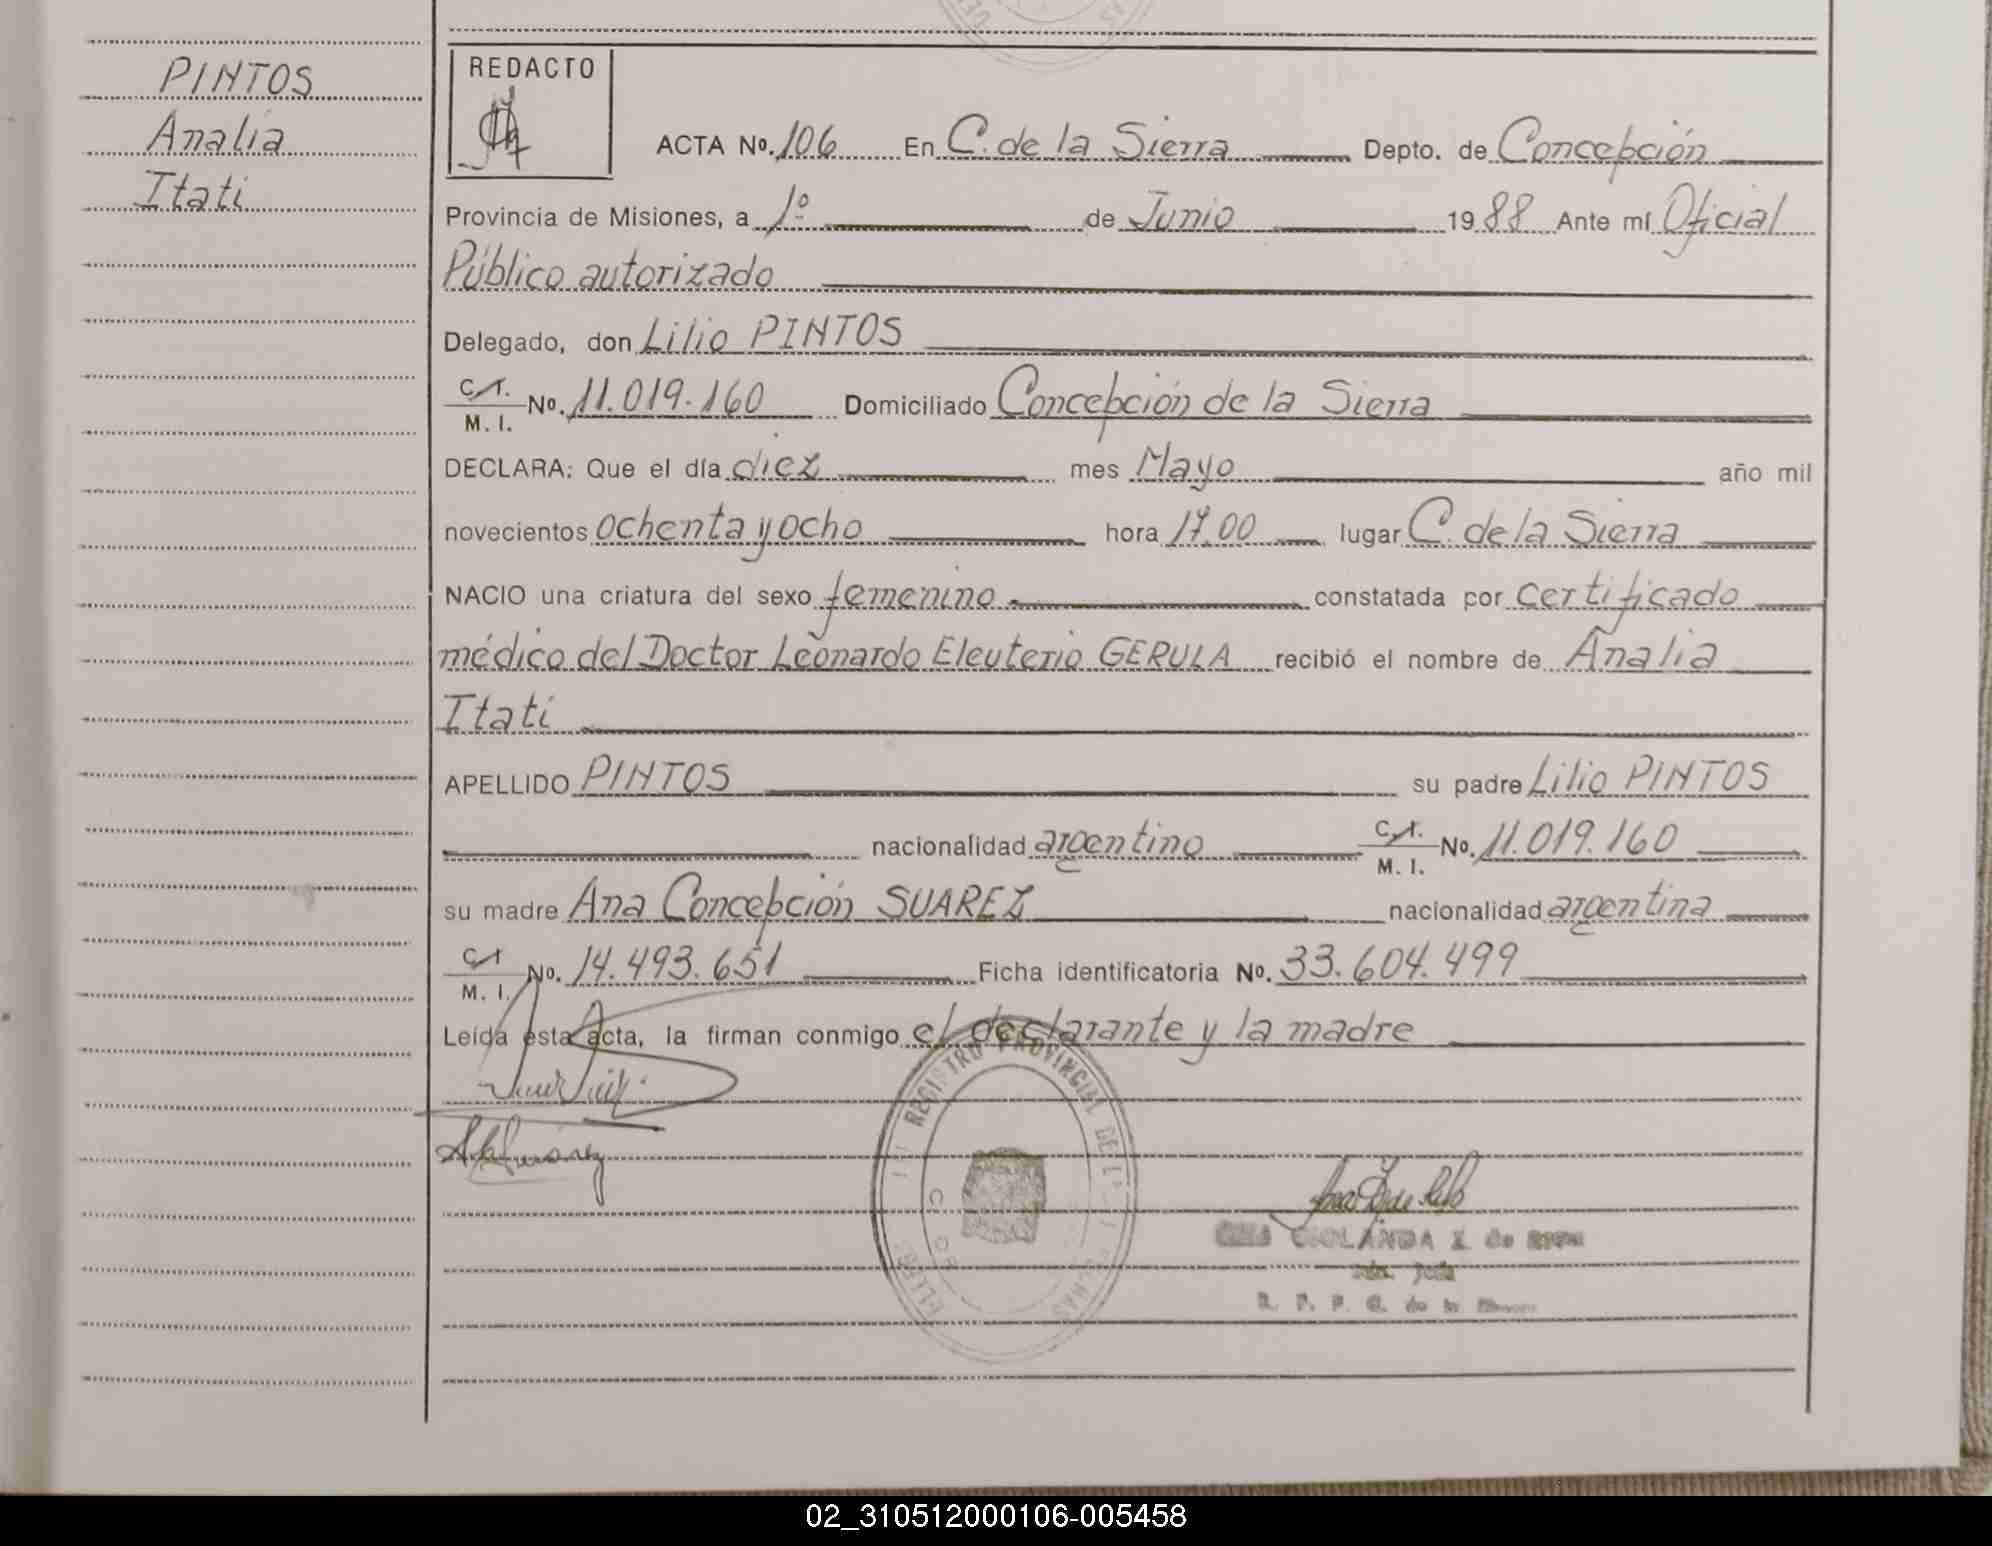 PINTOS
Analia
Itati
REDACTO
ACTA Nº. 106 En C. de la Sierra Depto. de Concepción
Provincia de Misiones, a 1º de Junio 1988 Ante mí Oficial
Público autorizado
Delegado, don Lilio PINTOS
C.I. M. I. Nº. 11.019.160 Domiciliado Concepción de la Sierra
DECLARA: Que el día diez mes Mayo año mil
novecientos ochenta y ocho hora 17.00 lugar C. de la Sierra
NACIO una criatura del sexo femenino constatada por certificado
médico del Doctor Leonardo Eleuterio GERULA recibió el nombre de Analia
Itati
APELLIDO PINTOS su padre Lilio PINTOS
nacionalidad argentino C.I. M. I. Nº. 11.019.160
su madre Ana Concepción SUAREZ nacionalidad argentina
C.I. M. I. Nº. 14.493.651 Ficha identificatoria Nº. 33.604.499
Leída esta acta, la firman conmigo el declarante y la madre
REGISTRO PROVINCIAL DE
02_310512000106-005458